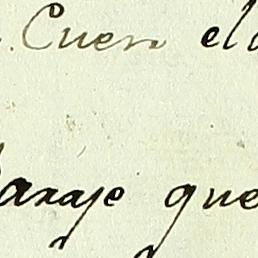 Cuero el
Paraje que